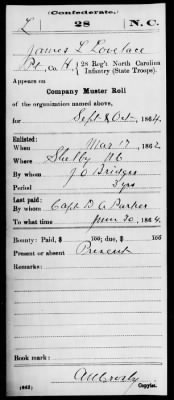 (Confederate.)
L 28 N. C.
James L Lovelace
Pt, Co. H, 28 Reg't North Carolina
Infantry (State Troops).
Appears on
Company Muster Roll
of the organization named above,
for Sept & Oct, 1864.
Enlisted:
When Mar 17, 1862
Where Shelby NC
By whom J O Bridges
Period 3 yrs
Last paid:
By whom Capt D A Parker
To what time June 30, 1864.
Bounty: Paid, $ 100; due, $ 100
Present or absent Present
Remarks:
Book mark:
(642) Copyist.